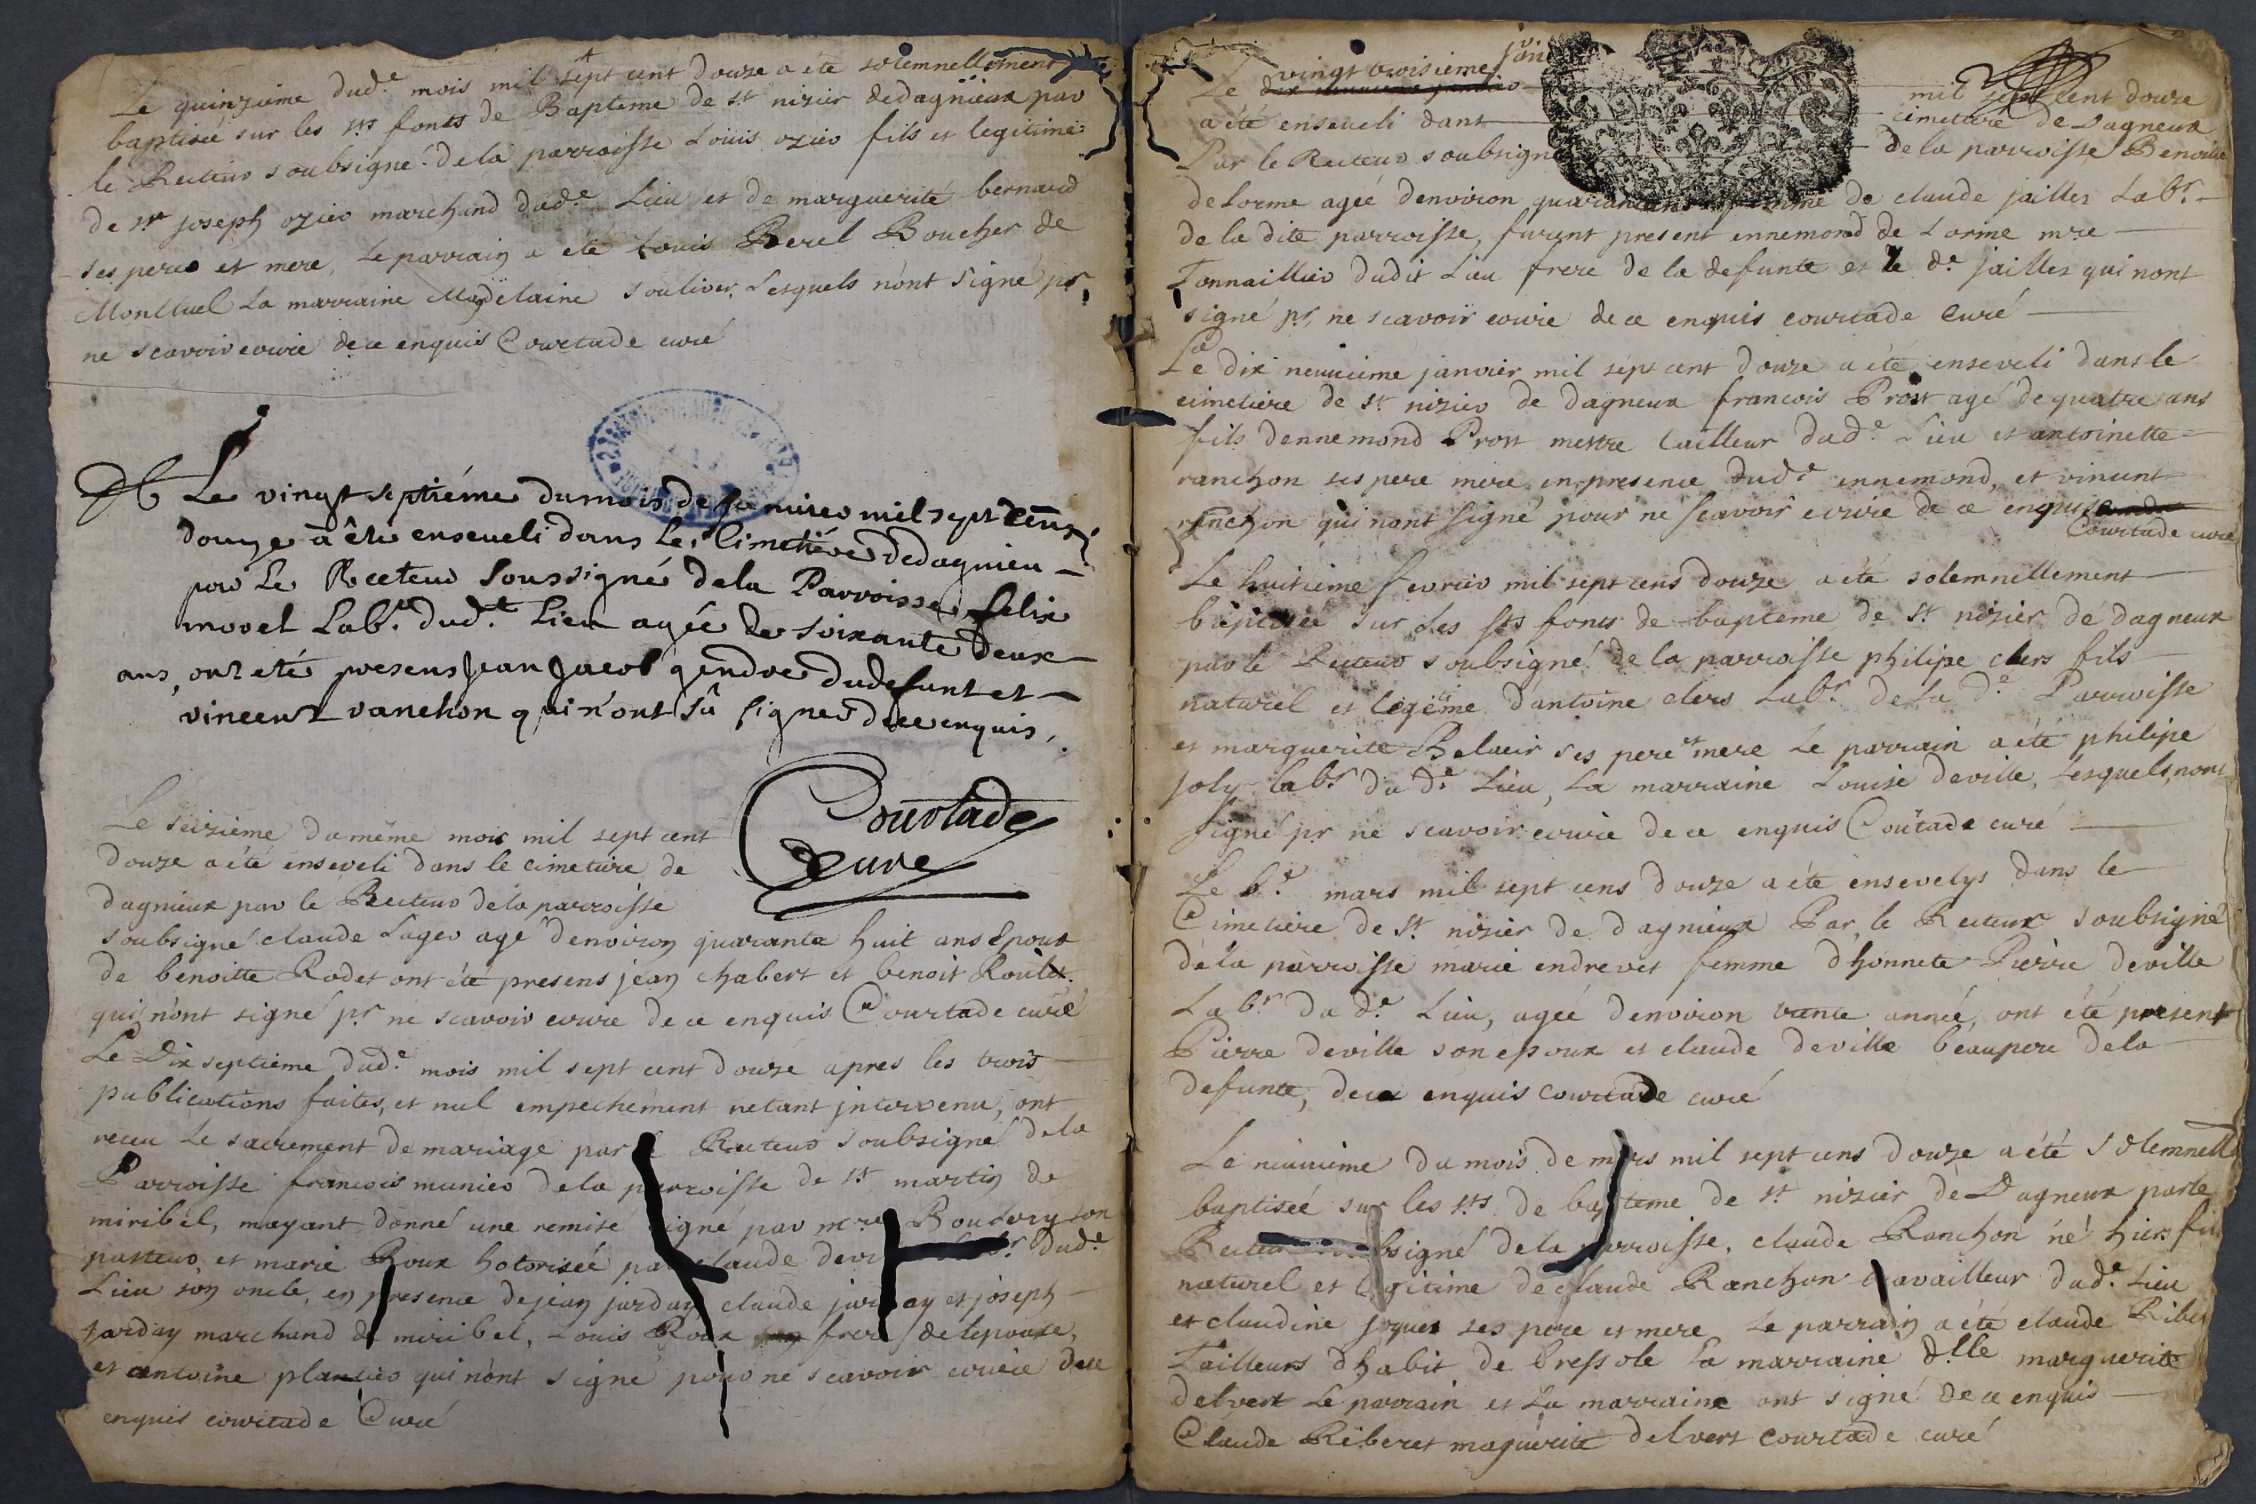 Le quinzieme dud.e mois mil sept cent douze a été solemnellement
baptisée sur les sts fonts de Bapteme de st nizier de dagnieux par
le Recteur soubsigné de la parroisse Louis ozier fils et legitime
de sr joseph ozier marchand dud.e Lieu et de marguerite bernard
ses pere et mere, Le parrain a été Louis Berel Boucher de
Montluel La marraine Madelaine souliver, Lesquels n'ont signé pr
ne scavoir ecrire de ce enquis Courtade curé
Le vingt septiéme du mois de janvier mil sept cens
douze a êtè enseveli dans Le Cimetiére de dagnieu
par Le Recteur Soussigné de la Parroisse felix
morel Lab.r dud.t Lieu agée de soixante deux
ans, ont eté presens Jean Jacob gendre du defunt et
vincent ranchon qui n'ont sû signer de ce enquis,
Courtade
Curé
Le seizième du même mois mil sept cent
douze a été enseveli dans le cimetiere de
dagnieux par le Recteur de la parroisse
soubsigné claude Lager agé d'environ quarante huit ans Epoux
de benoitte Rodet ont été presens jean chabert et benoit
qui n'ont signé pr ne scavoir ecrire de ce enquis Courtade curé
Le Dix septieme dud.e mois mil sept cent douze apres les trois
publications faites, et nul empechement netant jntervenu, ont
receu Le sacrement de mariage par Recteur soubsigné de la
Parroisse francois munier de la parroisse de st martin de
miribel, mayant donné une remise signé par mre son
pasteur, et marie Roux hotorisée par claude dud.e
Lieu son oncle, en presence de jean jarday claude jarday et joseph
jarday marchand de miribel, Louis Roux frere de lepouse,
et antoine plantier qui n'ont signé pour ne scavoir ecrire de ce
enquis courtade Curé
Le vingt troisieme mil sept cent douze
a été enseveli dans cimetiere de Dagneux
Par le Recteur soubsigné de la parroisse Benoite
delorme ageé denviron femme de claude jailler Labr
de la dite parroisse, furent present ennemond de Lorme mre
Tonnaillier dudit Lieu frere de la defunte et le d.e jailler qui nont
signé pr, ne scavoir ecrire de ce enquis courtade Curé
Le dix neuvieme janvier mil sept cent douze a été enseveli dans le
cimetiere de st nizier de dagneux francois Prost agé de quatre ans
fils dennemond Prost mestre tailleur dud.e Lieu et antoinette
ranchon ses pere mere en presence dud.e ennemond, et vincent
ranchon qui nont signé pour ne scavoir ecrire de ce enquis
Courtade curé
Le huitieme fevrier mil sept cens douze a été solemnellement
baptisée sur Les sts fonts de bapteme de st nizier de dagneux
par le Recteur soubsigné de la parroisse philipe clers fils
naturel et legitime d'antoine clers Labr de la d.e Parroisse
et marguerite Belair ses pere et mere Le parrain a été philipe
joly labr du d.e Lieu, La marraine Louise deville, Lesquels nont
signé pr ne scavoir ecrire de ce enquis Coutade curé
Le 6.e mars mil sept cens douze a été ensevelys dans le
Cimetiere de st nizier de dagnieux Par le Recteur soubsigné
de la parroisse marie endrevet femme d'honnete Pierre deville
Labr du d.e Lieu, ageé d'environ trente année, ont été present
Pierre deville son epoux et claude deville beaupere de la
defunte, de ce enquis courtade curé
Le neuvieme du mois de mars mil sept cens douze a été solemnell
baptiseé sur les sts de bapteme de st nizier de Dagneux par le
Recteur soubsigné de la parroisse, claude Ranchon né hier fils
naturel et legitime de claude Ranchon travailleur dud.e Lieu
et claudine ses pere et mere Le parrain a été claude Riberet
Tailleurs d'habit de bressole La marraine d.lle marguerite
delvert Le parrain et La marraine ont signé de ce enquis
Claude Riberet marguerite delvert courtade curé